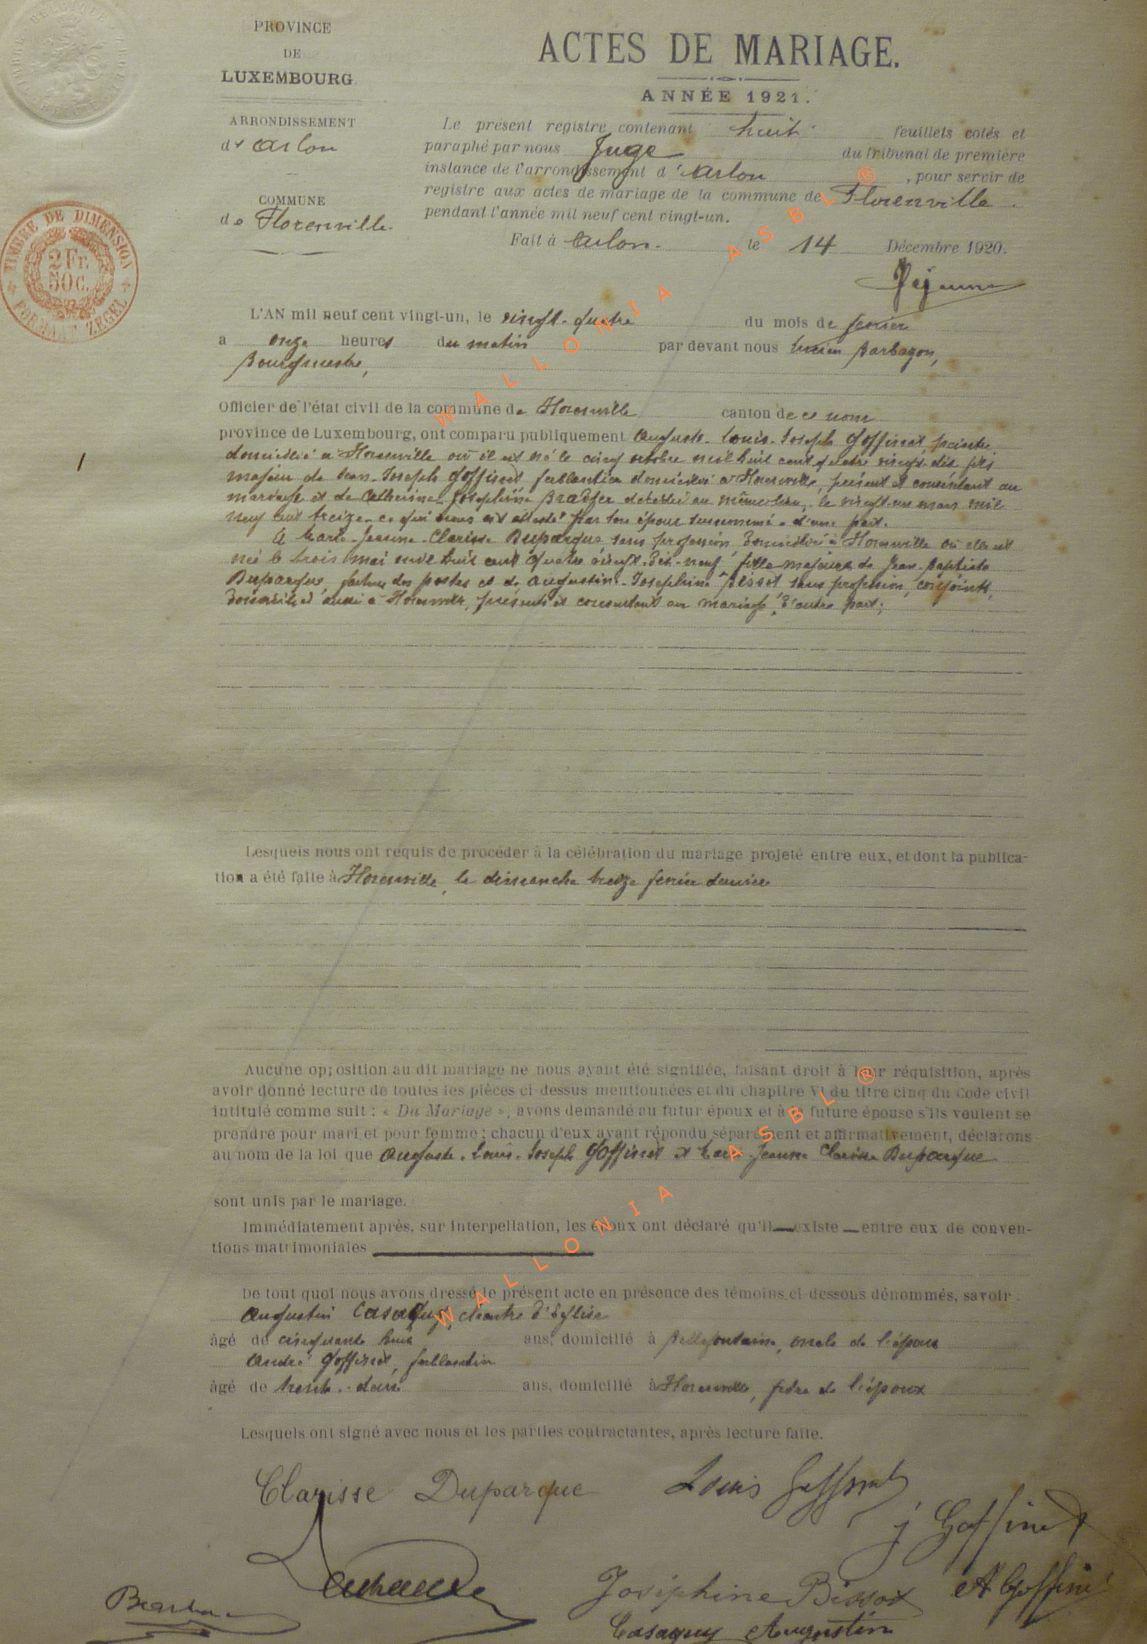 PROVINCE
DE
LUXEMBOURG
ARRONDISSEMENT
d' Arlon
COMMUNE
de Florenville.
TIMBRE DE DIMENSION
2 Fr.
50 C.
FORMAAT ZEGEL
ACTES DE MARIAGE.
ANNÉE 1921.
Le présent registre contenant huit feuillets cotés et
paraphé par nous Juge du tribunal de première
instance de l'arrondissement d'Arlon, pour servir de
registre aux actes de mariage de la commune de Florenville.
pendant l'année mil neuf cent vingt-un.
Fait à Arlon. le 14 Décembre 1920.
1
L'AN mil neuf cent vingt-un, le vingt-quatre du mois de février
a onze heures du matin par devant nous Lucien Barbazon,
Bourgmestre,
Officier de l'état civil de la commune de Florenville canton de ce nom
province de Luxembourg, ont comparu publiquement Auguste-Louis-Joseph Goffinet peintre
domicilié à Florenville où il est né le cinq octobre mil huit cent quatre vingt-dix fils
majeur de Jean-Joseph Goffinet ferblantier domicilié à Florenville, présent et consentant au
mariage et de Catherine-Joséphine Bradfer décédée au même lieu, le vingt-un mars mil
neuf cent treize, ce qui nous est attesté par le époux susnommé, d'une part.
Et Marie-Jeanne-Clarisse Duparque sans profession, domiciliée à Florenville où elle est
née le trois mai mil huit cent quatre vingt-dix-neuf, fille majeure de Jean-Baptiste
Duparque, facteur des postes et de Augustine-Joséphine Bissot, sans profession, conjoints,
domiciliés aussi à Florenville, présents et consentant au mariage, d'autre part;
Lesquels nous ont requis de procéder à la célébration du mariage projeté entre eux, et dont la publica-
tion a été faite à Florenville, le dimanche treize février dernier
Aucune opposition au dit mariage ne nous ayant été signifiée, faisant droit à leur réquisition, après
avoir donné lecture de toutes les pièces ci-dessus mentionnées et du chapitre VI du titre cinq du Code civil
intitulé comme suit : « Du Mariage », avons demandé au futur époux et à la future épouse s'ils veulent se
prendre pour mari et pour femme ; chacun d'eux ayant répondu séparément et affirmativement, déclarons
au nom de la loi que Auguste-Louis-Joseph Goffinet et Marie-Jeanne Clarisse Duparque
sont unis par le mariage.
Immédiatement après, sur interpellation, les époux ont déclaré qu'il existe entre eux de conven-
tions matrimoniales
De tout quoi nous avons dressé le présent acte en présence des témoins ci-dessous dénommés, savoir :
Augustin Casaquy, chantre d'église
âgé de cinquante huit ans, domicilié à Bellefontaine, oncle de l'épouse
André Goffinet, ferblantier
âgé de trente-deux ans, domicilié à Florenville, frère de l'époux
Lesquels ont signé avec nous et les parties contractantes, après lecture faite.
Clarisse Duparque Louis Goffinet
J Goffinet
Joséphine Bissot A Goffinet
Casaquy Augustin
WALLONIA ASBL ®
WALLONIA ASBL ®